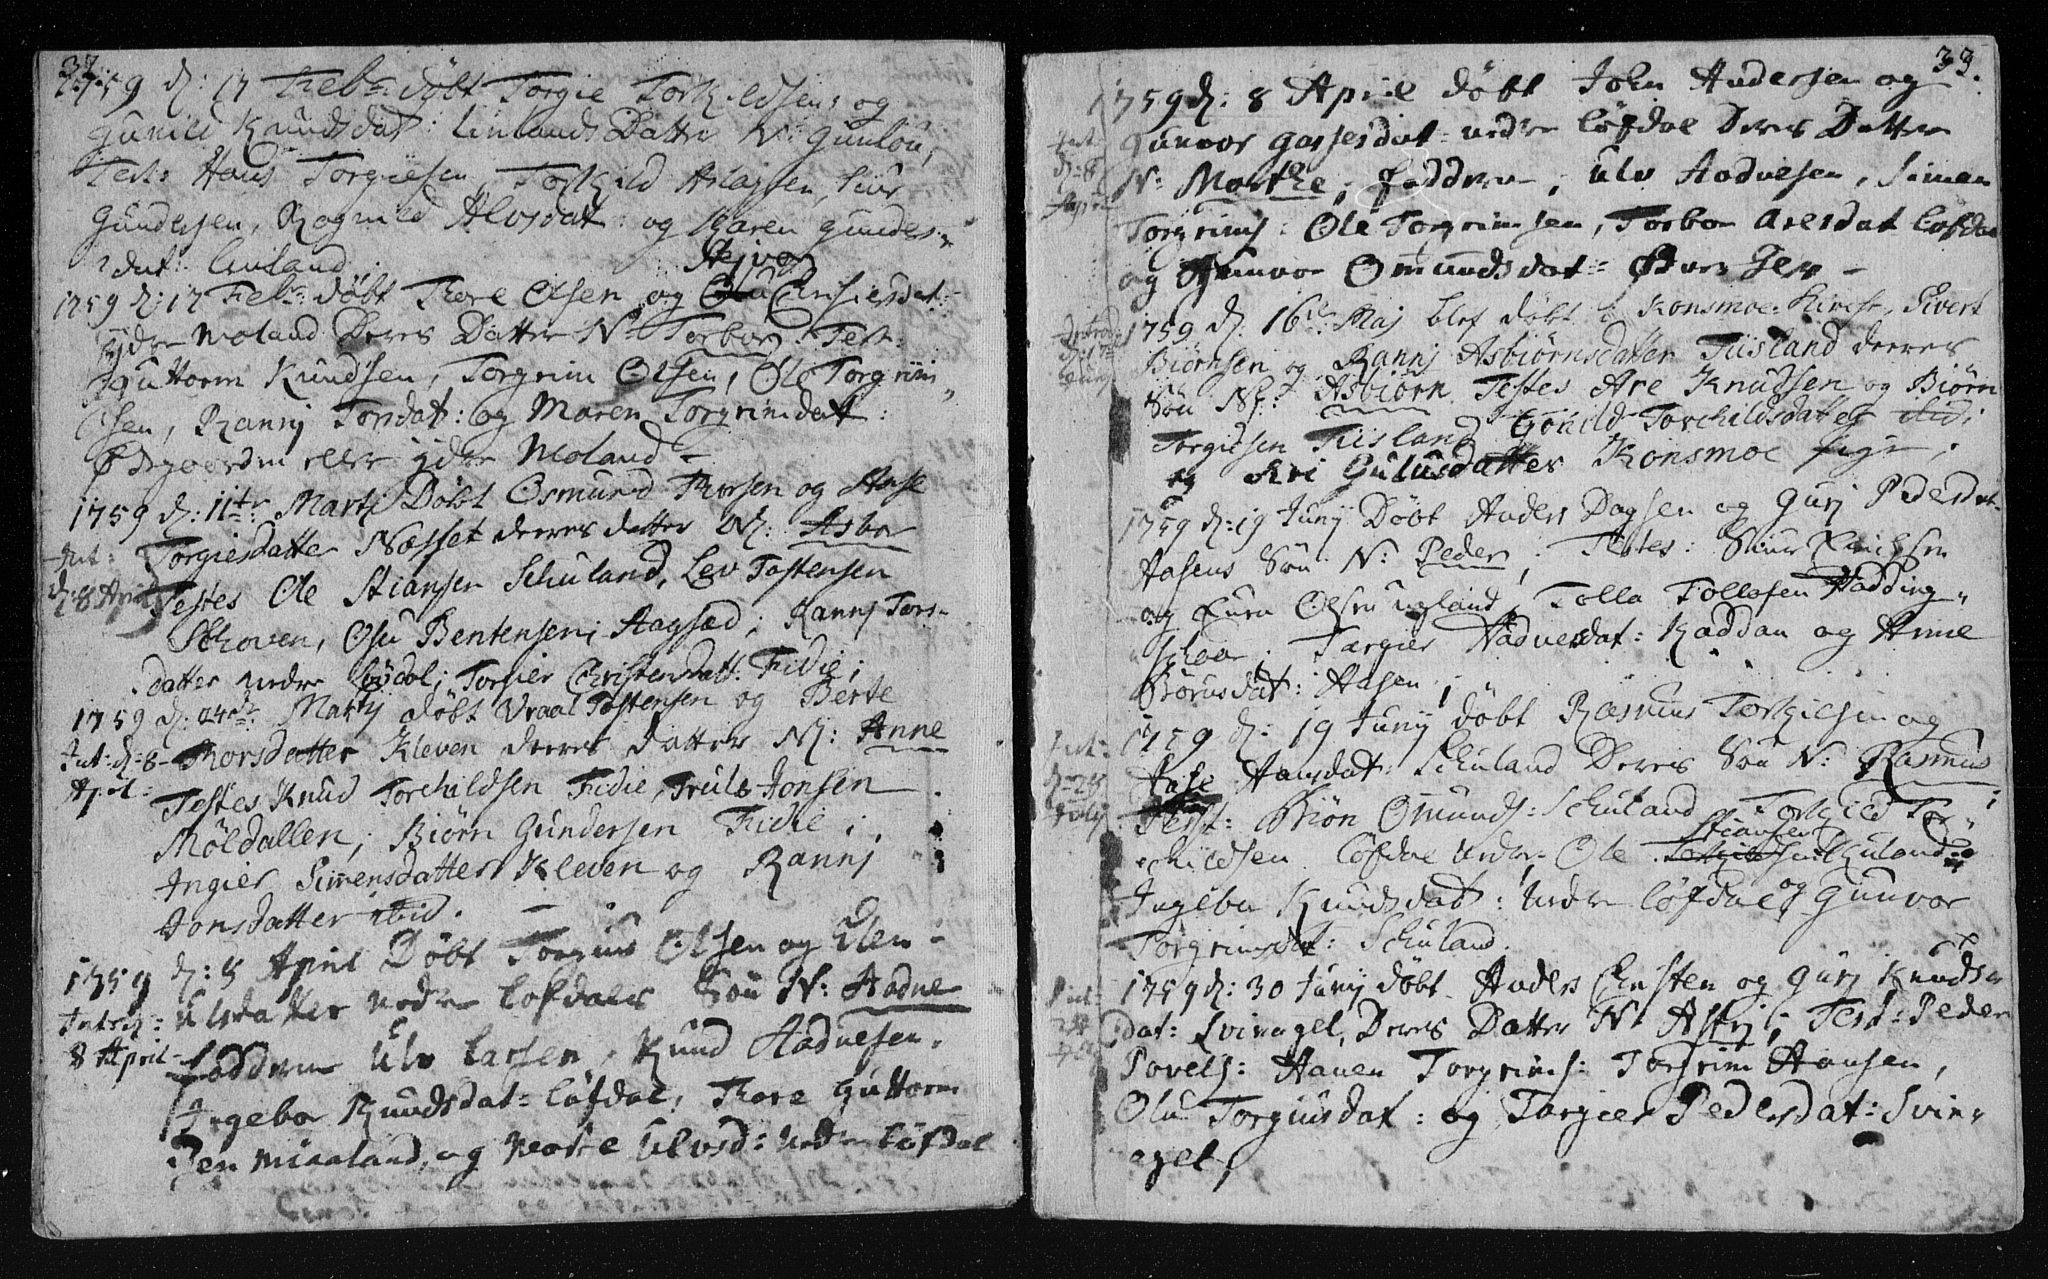 32.
1759 d: 17 Febr: døbt Torgie Torkildsen: og
Gunild Knudsdat: Linlands Datter N: Gunlou,
Test: Hans Torgiesen, Torkild Aslagsen, Siur
Gundersen, Ragnild Alvsdat: og Karen gunders-
dat: Linland.
Asjvor
1759 d: 17 Febr: døbt Thore Olsen og Chrsiesdat:
ydre Moland Deres Datter N: Torbor. Test:
Guttorm Knudsen, Torgrim Olsen, Ole Torgrim
sen, Rannj Torsdat: og Maren Torgrimdatt:
Ødegaarden eller ydre Moland
1759 d: 11te Martj Døbt Osmund Thorsen og Aase
Torgiesdatter Nesset deres datter N: Asbor
Int:
d: 8 April
Testes Ole Stiansen Schuland, Lev Tostensen
Schoven, Osu Bentensen; Aagsæd; Rannj Tors-
datter nedre løfdal; Torgier Christensdatt: Fidie;
1759 d: 24de Martj døbt Vraal Tostensen og Berte
Int: d: 8
April:
Thorsdatter Kleven deres datter N: Anne
Testes Knud Torchildsen Fidie, Truls Jonsen
Møldallen; Biørn Gundersen Fidie;
Ingier Simensdatter Kleven og Rannj
Jonsdatter ibid.
1759 d: 8 April Døbt Torgius Olsen og Elen
Introd:
8 April
Ulsdatter nedre Løfdals Søn N: Aadne
Faddrene Ulv Larsen, Knud Aadnesen,
Ingebor Knudsdat: Løfdal, Thore Guttorm
sen Miaaland, og Marte Ulvsd: nedre Løfdal
33.
1759 d: 8 April døbt John Andersen og
Int:
d: 8
April
Gunvor gassesdat: nedre Løfdal Deres Datter
N: Marthe, Faddrene, Ulv Aadnesen, Simen
Torgrims: Ole Torgrimsen, Torbor Aresdat Løfdal
og Gunvor Omundsdat:
1759 d: 16de Maj blef døbt i Konsmoe Kirke, Sivert
Introd:
Biørnsen og Rannj Asbiørnsdatter Tiisland deres
Søn N: Asbiørn, Testes Are Knudsen og Biørn
Torgiusen Tiisland Gonild Torchildsdatter ibid;
og Ari Gulusdatter Konsmoe pige;
1759 d: 19 Junij Døbt Anders Dagsen og Gurj Pedersdat:
Aasens Søn N: Peder, Testes: Siur
og Even Olsen ugland, Tolla Tollofsen Hadding-
schoa, Targier Aadnesdat: Kaddan og Anne
Børusdat: Aasen
1759 d: 19 Junij døbt Rasmus Torkilsen og
Int:
d: 25
July
Aase Hansdat: Schuland Deres Søn N: Rasmus
Test: Biøn Omunds: Schuland, Torkild Tor-
childsen Løfdal nedre, Ole Stiansen Schuland
Ingebor Knudsdat: nedre Løfdal, og Gunvor
Torgrimsdat: Schuland.
1759 d: 30 Junij døbt Anders Ensten og Gurj Knuds
Int:
dat: Svinagel, Deres Datter N: Astrj; Test: Peder
Povels: Haven Torgrims: Torgrim Hansen,
Olu Torgiusdat: og Targier Pedersdat: Svin-
agel,